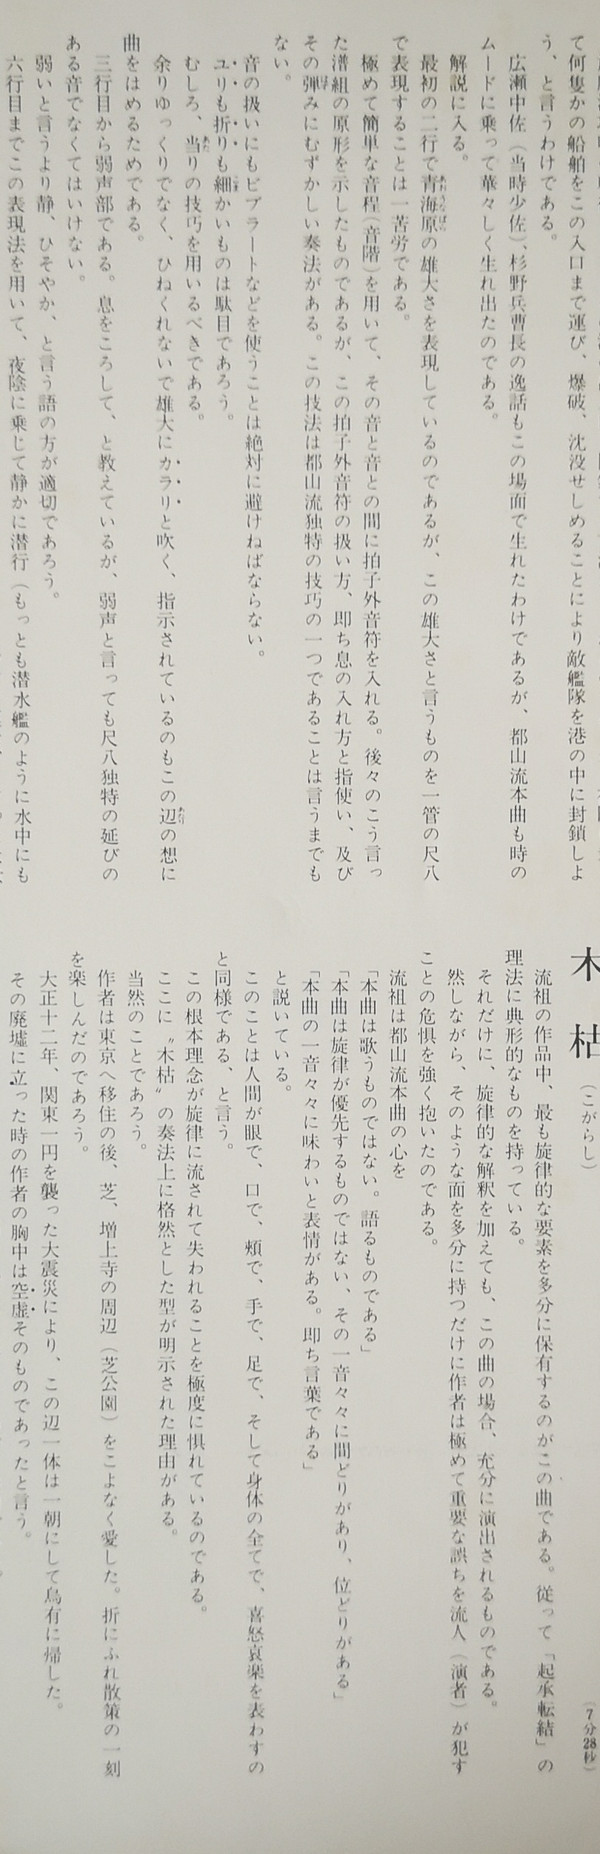 て何隻かの船舶をこの入口まで運び、爆破、沈没せしめることにより敵艦隊を港の中に封鎖しよ
う、と言うわけである。
広瀬中佐（当時少佐）、杉野兵曹長の逸話もこの場面で生れたわけであるが、都山流本曲も時の
ムードに乗って華々しく生れ出たのである。
解説に入る。
最初の二行で青海原の雄大さを表現しているのであるが、この雄大さと言うものを一管の尺八
で表現することは一苦労である。
極めて簡単な音程（音階）を用いて、その音と音との間に拍子外音符を入れる。後々のこう言っ
た譜組の原形を示したものであるが、この拍子外音符の扱い方、即ち息の入れ方と指使い、及び
その弾みにむずかしい奏法がある。この技法は都山流独特の技巧の一つであることは言うまでも
ない。
音の扱いにもビブラートなどを使うことは絶対に避けねばならない。
ユリも折りも細かいものは駄目であろう。
むしろ、当りの技巧を用いるべきである。
余りゆっくりでなく、ひねくれないで雄大にカラリと吹く、指示されているのもこの辺の想に
曲をはめるためである。
三行目から弱声部である。息をころして、と教えているが、弱声と言っても尺八独特の延びの
ある音でなくてはいけない。
弱いと言うより静、ひそやか、と言う語の方が適切であろう。
六行目までこの表現法を用いて、夜陰に乗じて静かに潜行（もっとも潜水艦のように水中にも
木枯（こがらし）
（7分28秒）
流祖の作品中、最も旋律的な要素を多分に保有するのがこの曲である。従って「起承転結」の
理法に典形的なものを持っている。
それだけに、旋律的な解釈を加えても、この曲の場合、充分に演出されるものである。
然しながら、そのような面を多分に持つだけに作者は極めて重要な誤ちを流人（演者）が犯す
ことの危惧を強く抱いたのである。
流祖は都山流本曲の心を
「本曲は歌うものではない。語るものである」
「本曲は旋律が優先するものではない、その一音々々に間どりがあり、位どりがある」
「本曲の一音々々に味わいと表情がある。即ち言葉である」
と説いている。
このことは人間が眼で、口で、頬で、手で、足で、そして身体の全てで、喜怒哀楽を表わすの
と同様である、と言う。
この根本理念が旋律に流されて失われることを極度に惧れているのである。
ここに〝木枯〟の奏法上に格然とした型が明示された理由がある。
当然のことであろう。
作者は東京へ移住の後、芝、増上寺の周辺（芝公園）をこよなく愛した。折にふれ散策の一刻
を楽しんだのであろう。
大正十二年、関東一円を襲った大震災により、この辺一体は一朝にして烏有に帰した。
その廃墟に立った時の作者の胸中は空虚そのものであったと言う。